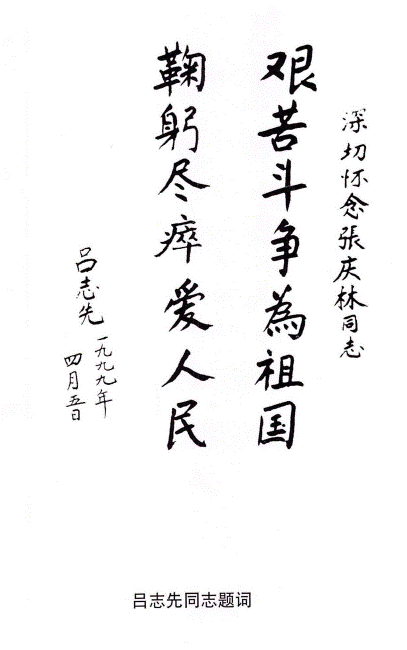 深切怀念張庆林同志
艰苦斗争為祖国
鞠躬尽瘁爱人民
吕志先
一九九九年
四月五日
吕志先同志题词